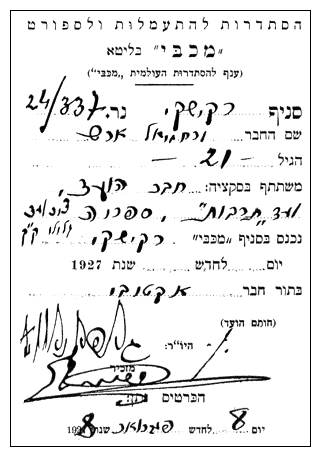 הסתדרות להתעמלות ולספורט
„מכבי" בליטא
(ענף להסתדרות העולמית „מכבי")
סניף רקישקי נר. 24/337
שם החבר ירחמיאל ארש
הגיל — 21 —
משתתף בסקציה: חבר הועד,
ועד „תרבות", ספריה
נכנס בסניף „מכבי" רקישקי
יום לחדש שנת 1927
בתור חבר אקטובי
(חותם הועד)
היו"ר:
מזכיר
הכרטיס נתן:
יום 8 לחדש פברואר שנת 1928